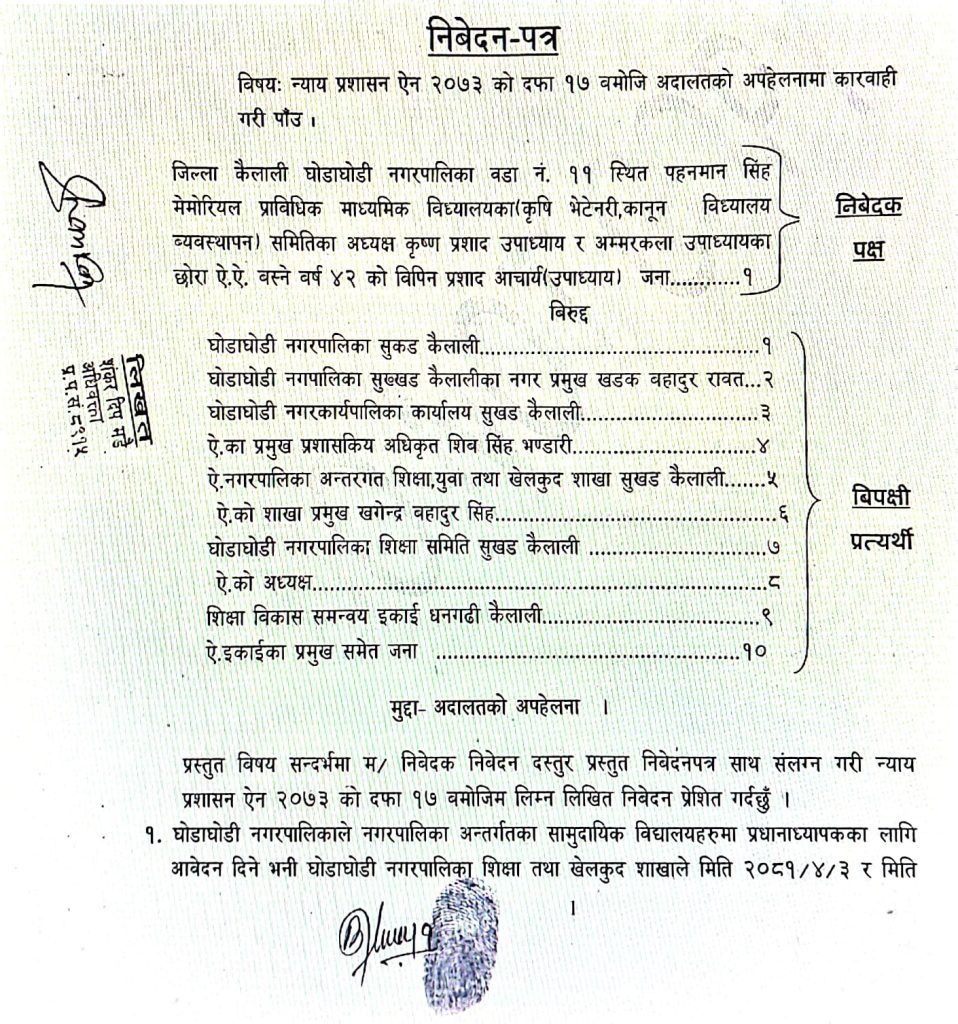 निबेदन-पत्र
विषयः न्याय प्रशासन ऐन २०७३ को दफा १७ वमोजि अदालतको अपहेलनामा कारवाही
गरी पाँउ ।
जिल्ला कैलाली घोडाघोडी नगरपालिका वडा नं. ११ स्थित पहनमान सिंह
मेमोरियल प्राविधिक माध्यमिक विध्यालयका(कृषि भेटेनरी,कानून विध्यालय
व्यवस्थापन) समितिका अध्यक्ष कृष्ण प्रशाद उपाध्याय र अम्मरकला उपाध्यायका
छोरा ऐ.ऐ. वस्ने वर्ष ४२ को विपिन प्रशाद आचार्य(उपाध्याय) जना............१
निबेदक
पक्ष
बिरुद्द
घोडाघोडी नगरपालिका सुकड कैलाली................................................१
घोडाघोडी नगपालिका सुख्खड कैलालीका नगर प्रमुख खडक वहादुर रावत...२
घोडाघोडी नगरकार्यपालिका कार्यालय सुखड कैलाली..............................३
ऐ.का प्रमुख प्रशासकिय अधिकृत शिव सिंह भण्डारी................................४
ऐ.नगरपालिका अन्तरगत शिक्षा,युवा तथा खेलकुद शाखा सुखड कैलाली.......५
ऐ.को शाखा प्रमुख खगेन्द्र वहादुर सिंह................................................६
घोडाघोडी नगरपालिका शिक्षा समिति सुखड कैलाली ..............................७
ऐ.को अध्यक्ष.................................................................................८
शिक्षा विकास समन्वय इकाई धनगढी कैलाली.....................................९
ऐ.इकाईका प्रमुख समेत जना ....................................................१०
बिपक्षी
प्रत्यर्थी
मुद्दा- अदालतको अपहेलना ।
प्रस्तुत विषय सन्दर्भमा म/ निवेदक निवेदन दस्तुर प्रस्तुत निवेदनपत्र साथ संलग्न गरी न्याय
प्रशासन ऐन २०७३ को दफा १७ वमोजिम लिम्न लिखित निवेदन प्रेशित गर्दछुँ ।
१. घोडाघोडी नगरपालिकाले नगरपालिका अन्तर्गतका सामुदायिक विद्यालयहरुमा प्रधानाध्यापकका लागि
आवेदन दिने भनी घोडाघोडी नगरपालिका शिक्षा तथा खेलकुद शाखाले मिति २०८१/४/३ र मिति
1
अधिवक्ता